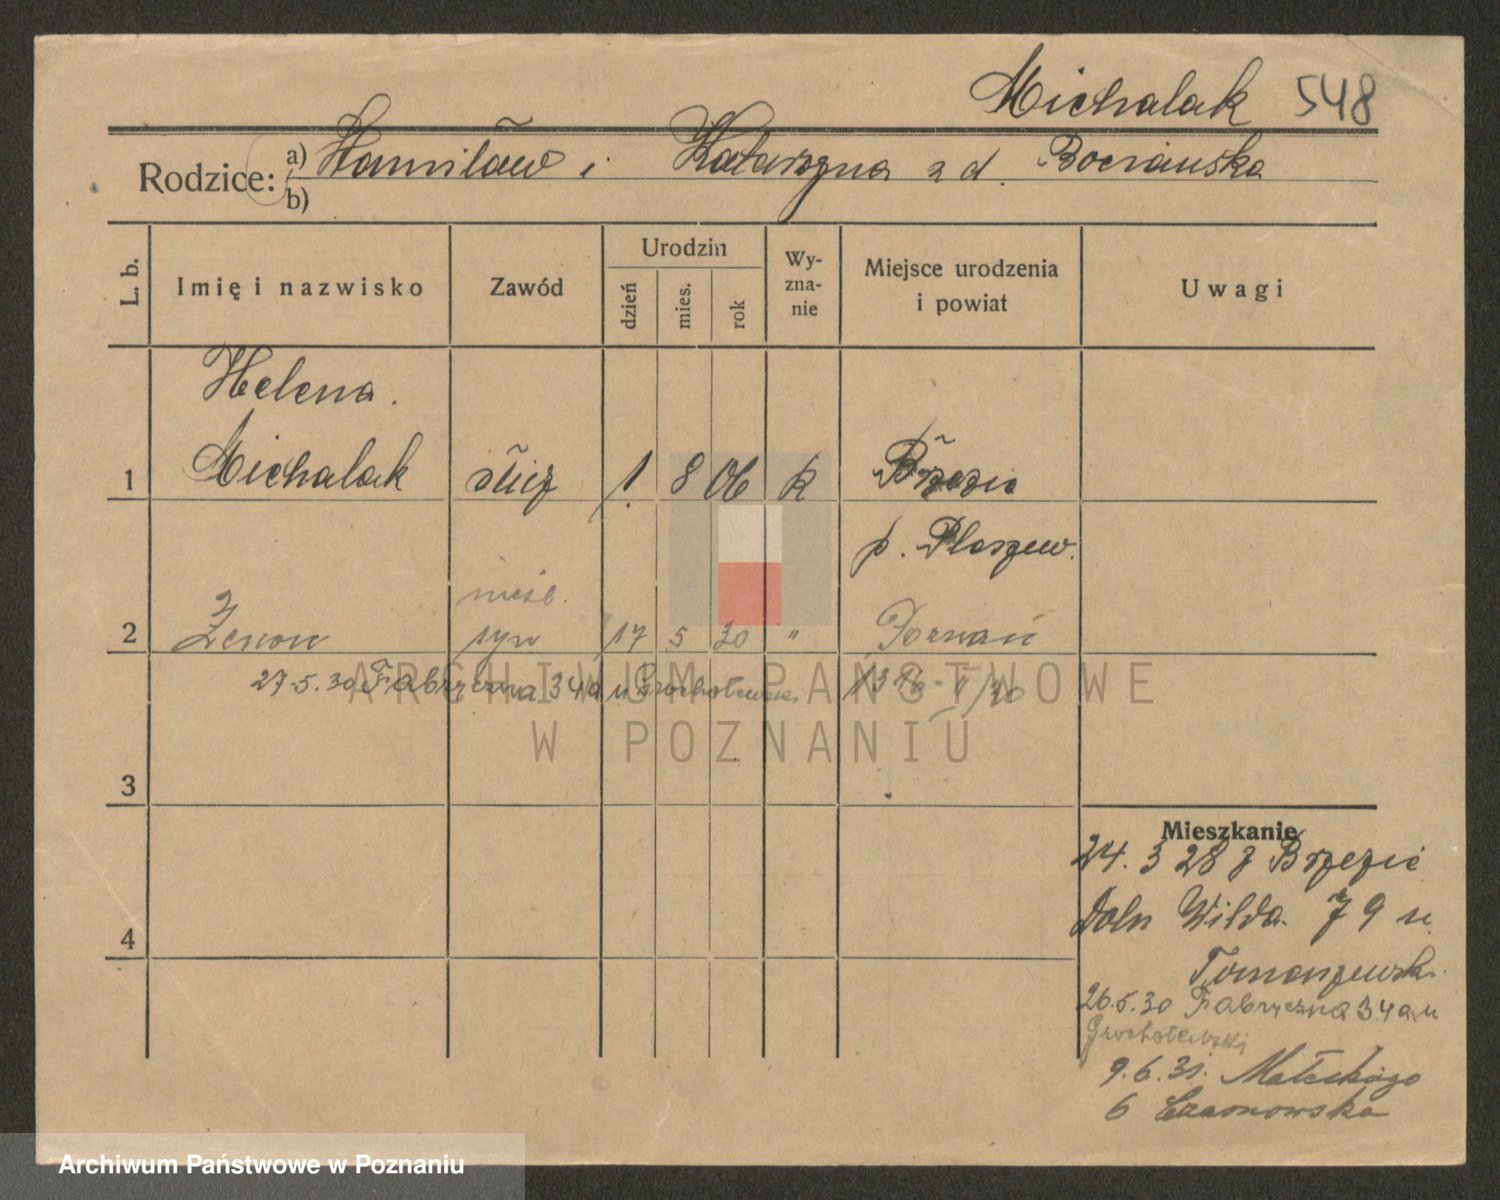 Michalak 548
Rodzice: a) Stanisław i Katarzyna z d. Bociańska
b)
L. b.
Imię i nazwisko
Zawód
Urodzin
dzień
mies.
rok
Wy-
zna-
nie
Miejsce urodzenia
i powiat
Uwagi
Helena.
1 Michalak służ 1. 8 06 k Brzezie
p. Pleszew.
nieśl.
2 Zenon syn 17 5 30 " Poznań
27.5.30 Fabryczna 34a u Grocholewski
3
4
Mieszkanie
24. 3 28 z Brzezie
Doln Wilda 79 u
Tomaszewski
26.5.30 Fabryczna 34a u
Grocholewski
9.6.31. Małeckiego
6 Czarnowska
ARCHIWUM PAŃSTWOWE
W POZNANIU
Archiwum Państwowe w Poznaniu